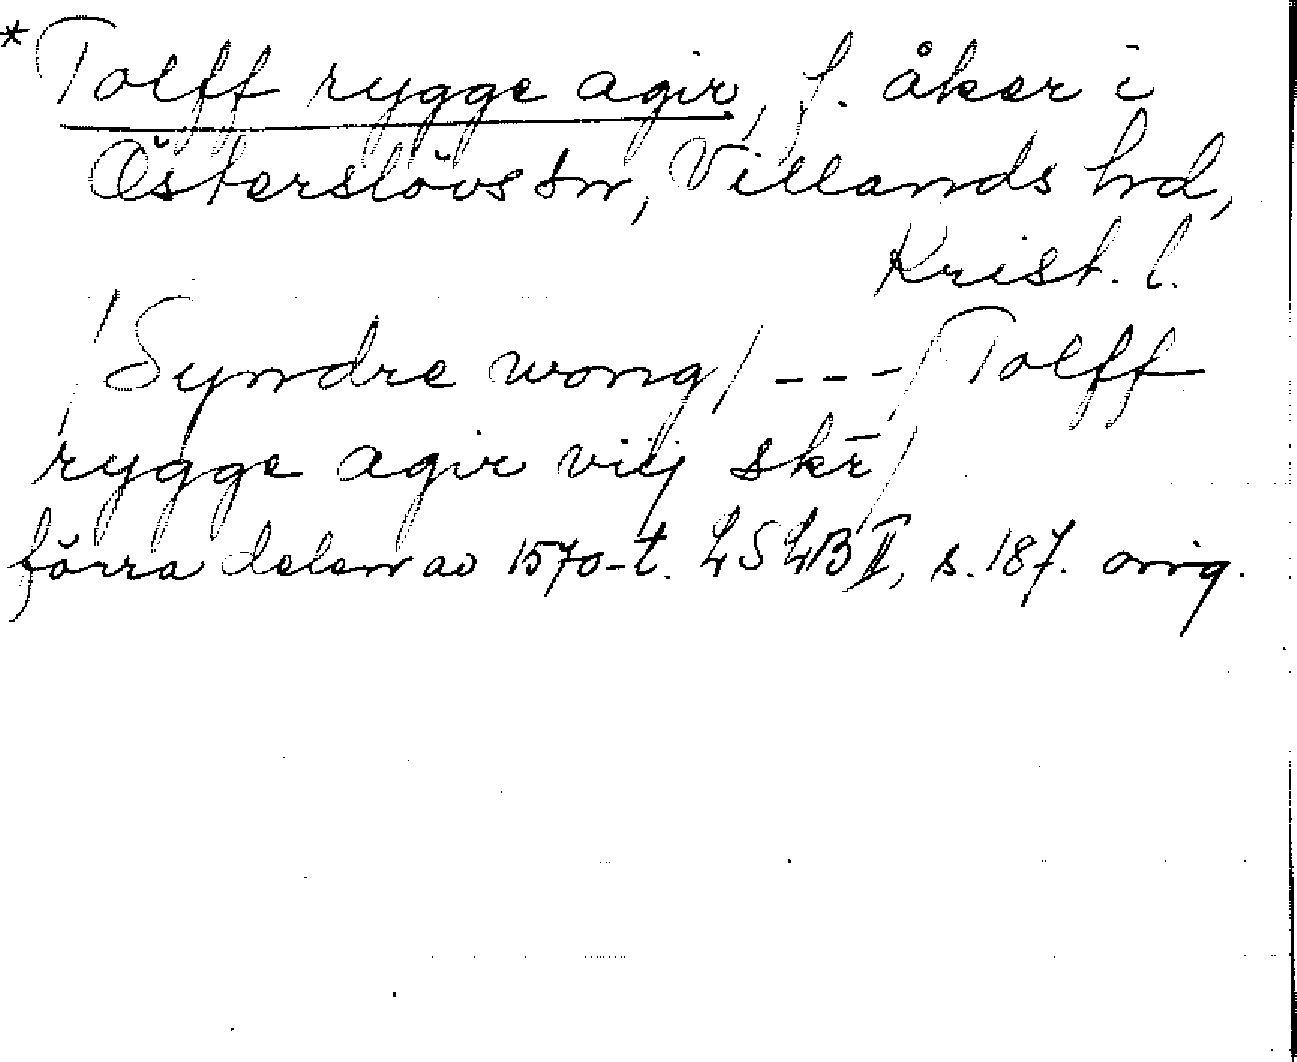 *Tolff rygge agir, f. åker i
Österslövs sn, Villands hd,
Krist. l.
/Syndre wong/ --- /Tolff
rygge agir viij skr̄/
förra delen av 1570-t. LSLB II, s. 187. orig.